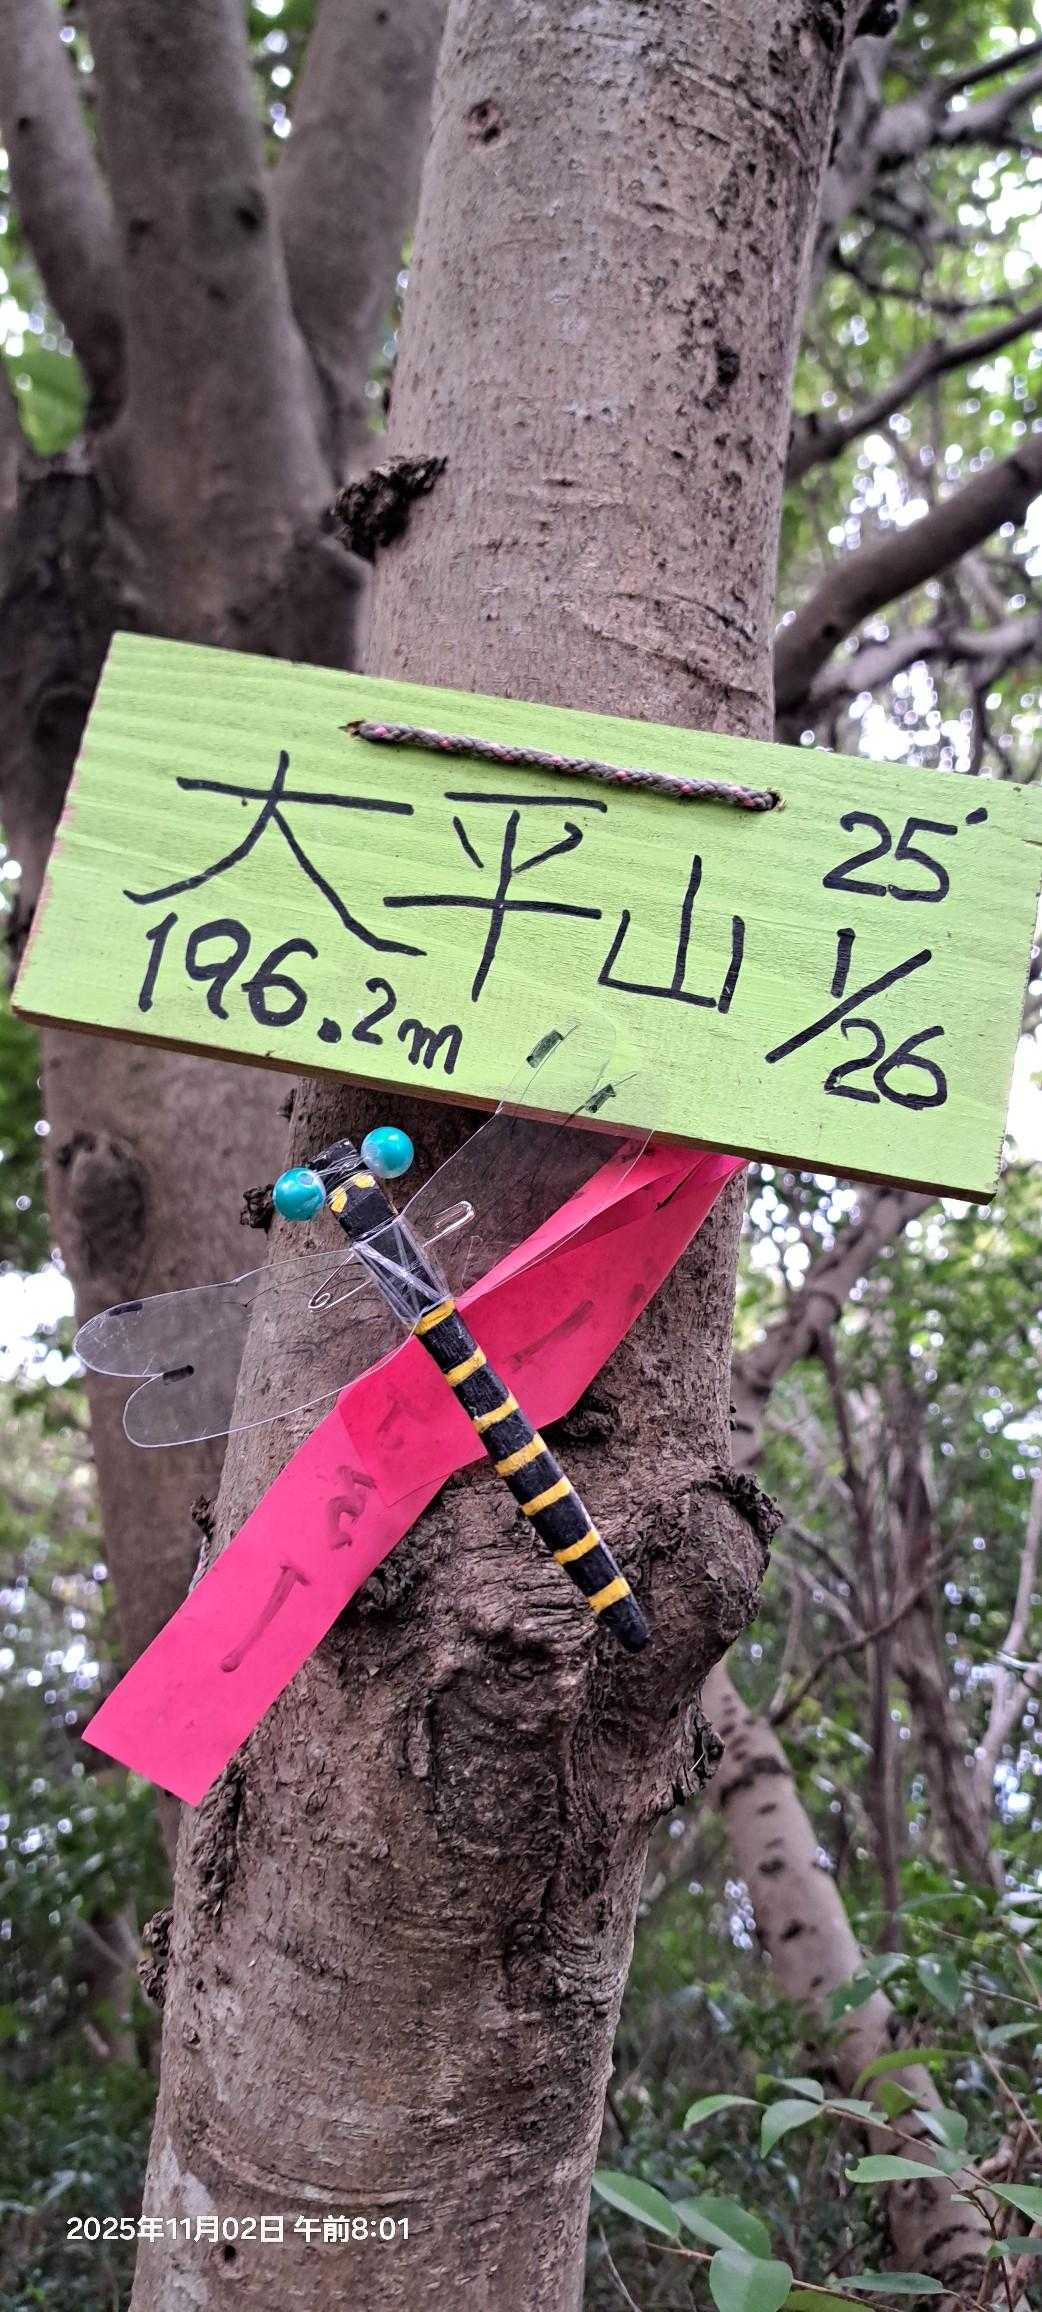 大平山
196.2m
25'
1/26
2025年11月02日 午前8:01